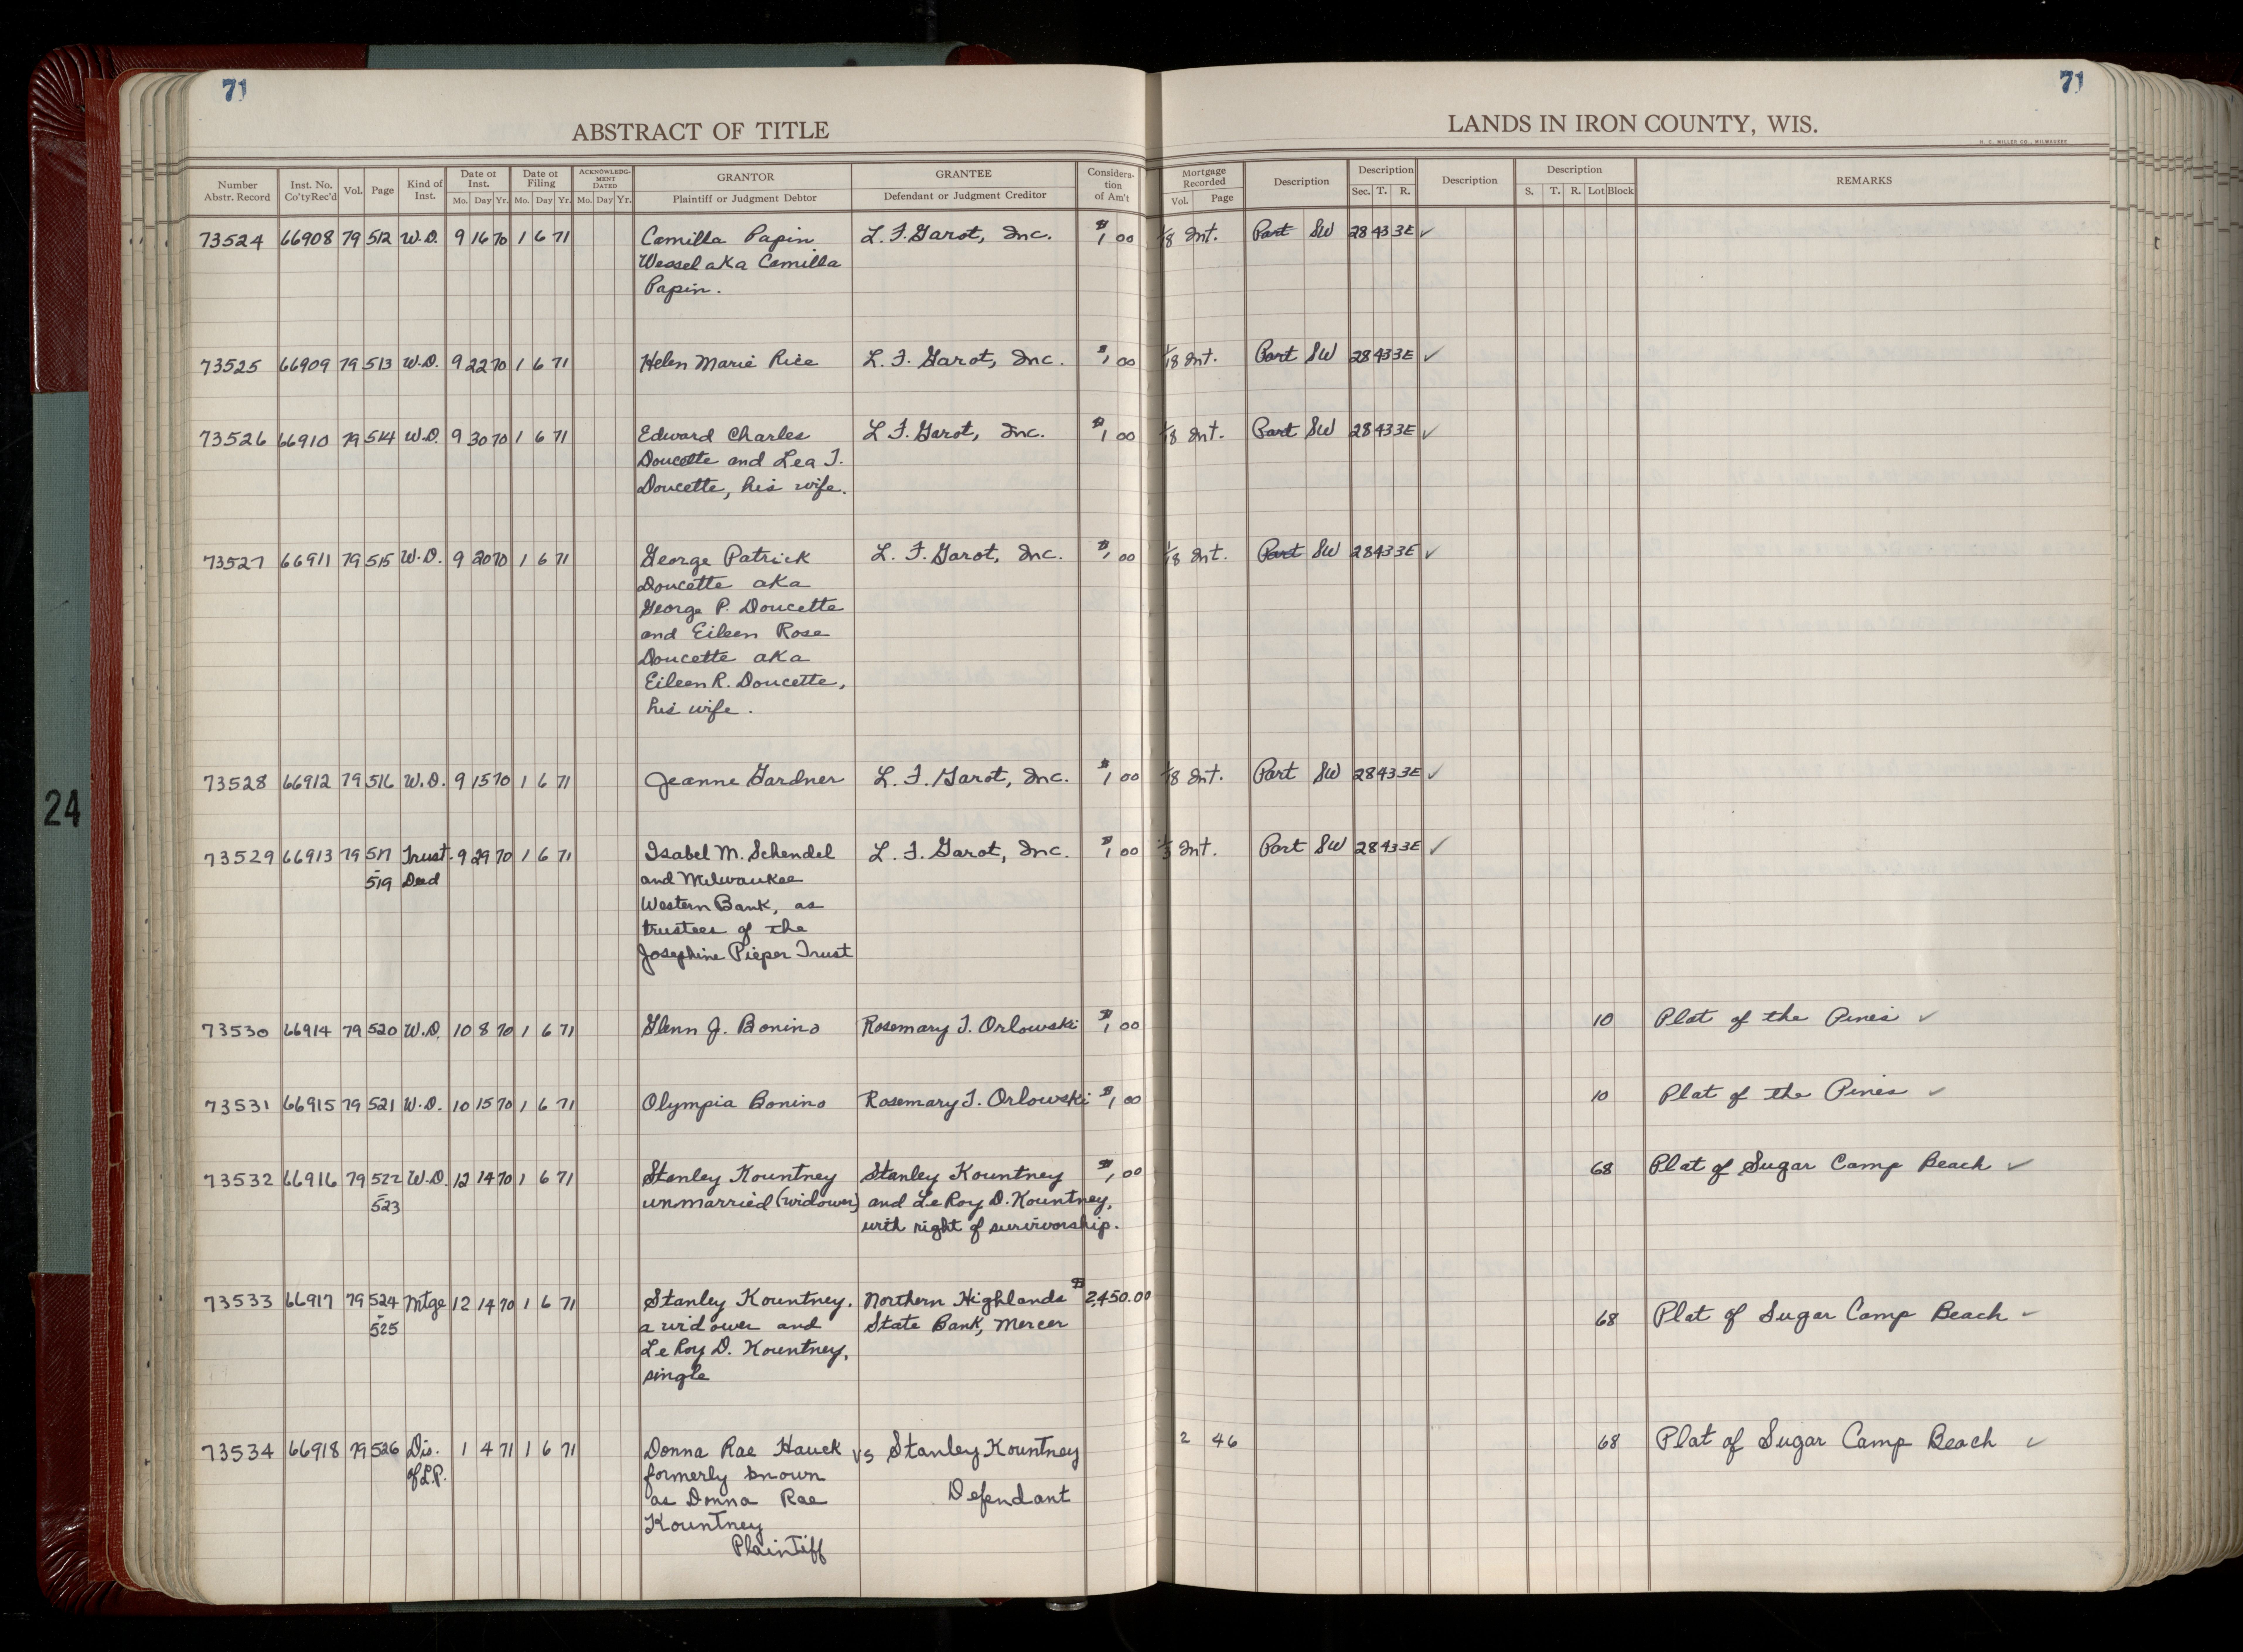 71
71
ABSTRACT OF TITLE
LANDS IN IRON COUNTY, WIS.
H. C. MILLER CO., MILWAUKEE
Number Abstr. Record Inst. No. Co'ty Rec'd Vol. Page Kind of Inst. Date of Inst. Mo. Day Yr. Date of Filing Mo. Day Yr. ACKNOWLEDGMENT DATED Mo. Day Yr. GRANTOR Plaintiff or Judgment Debtor GRANTEE Defendant or Judgment Creditor Consideration of Am't Mortgage Recorded Vol. Page Description Description Sec. T. R. Description Description S. T. R. Lot Block REMARKS
73524 66908 79 512 W.D. 9 16 70 1 6 71 Camilla Papin L. F. Garot, Inc. $1.00 1/18 Int. Part SW 28 43 3E ✓
Wessel aka Camilla
Papin.
73525 66909 79 513 W.D. 9 22 70 1 6 71 Helen Marie Rice L. F. Garot, Inc. $1.00 1/18 Int. Part SW 28 43 3E ✓
73526 66910 79 514 W.D. 9 30 70 1 6 71 Edward Charles L F. Garot, Inc. $1.00 1/18 Int. Part SW 28 43 3E ✓
Doucette and Lea T.
Doucette, his wife.
73527 66911 79 515 W.D. 9 20 70 1 6 71 George Patrick L. F. Garot, Inc. $1.00 1/18 Int. Part SW 28 43 3E ✓
Doucette aka
George P. Doucette
and Eileen Rose
Doucette aka
Eileen R. Doucette,
his wife.
73528 66912 79 516 W.D. 9 15 70 1 6 71 Jeanne Gardner L. F. Garot, Inc. $1.00 1/18 Int. Part SW 28 43 3E ✓
73529 66913 79 517 Trust 9 29 70 1 6 71 Isabel M. Schendel L. F. Garot, Inc. $1.00 1/3 Int. Part SW 28 43 3E ✓
- 519 Deed and Milwaukee
Western Bank, as
trustees of the
Josephine Pieper Trust
73530 66914 79 520 W.D. 10 8 70 1 6 71 Glenn J. Bonino Rosemary T. Orlowski $1.00 10 Plat of the Pines ✓
73531 66915 79 521 W.D. 10 15 70 1 6 71 Olympia Bonino Rosemary T. Orlowski $1.00 10 Plat of the Pines ✓
73532 66916 79 522 W.D. 12 14 70 1 6 71 Stanley Kountney Stanley Kountney $1.00 68 Plat of Sugar Camp Beach ✓
- 523 unmarried (widower) and LeRoy D. Kountney,
with right of survivorship.
73533 66917 79 524 Mtge 12 14 70 1 6 71 Stanley Kountney, Northern Highlands $2,450.00 68 Plat of Sugar Camp Beach ✓
- 525 a widower and State Bank, Mercer
LeRoy D. Kountney,
single
73534 66918 79 526 Dis. 1 4 71 1 6 71 Donna Rae Hauck vs Stanley Kountney 2 46 68 Plat of Sugar Camp Beach ✓
of L.P. formerly known
as Donna Rae Defendant
Kountney
Plaintiff
24